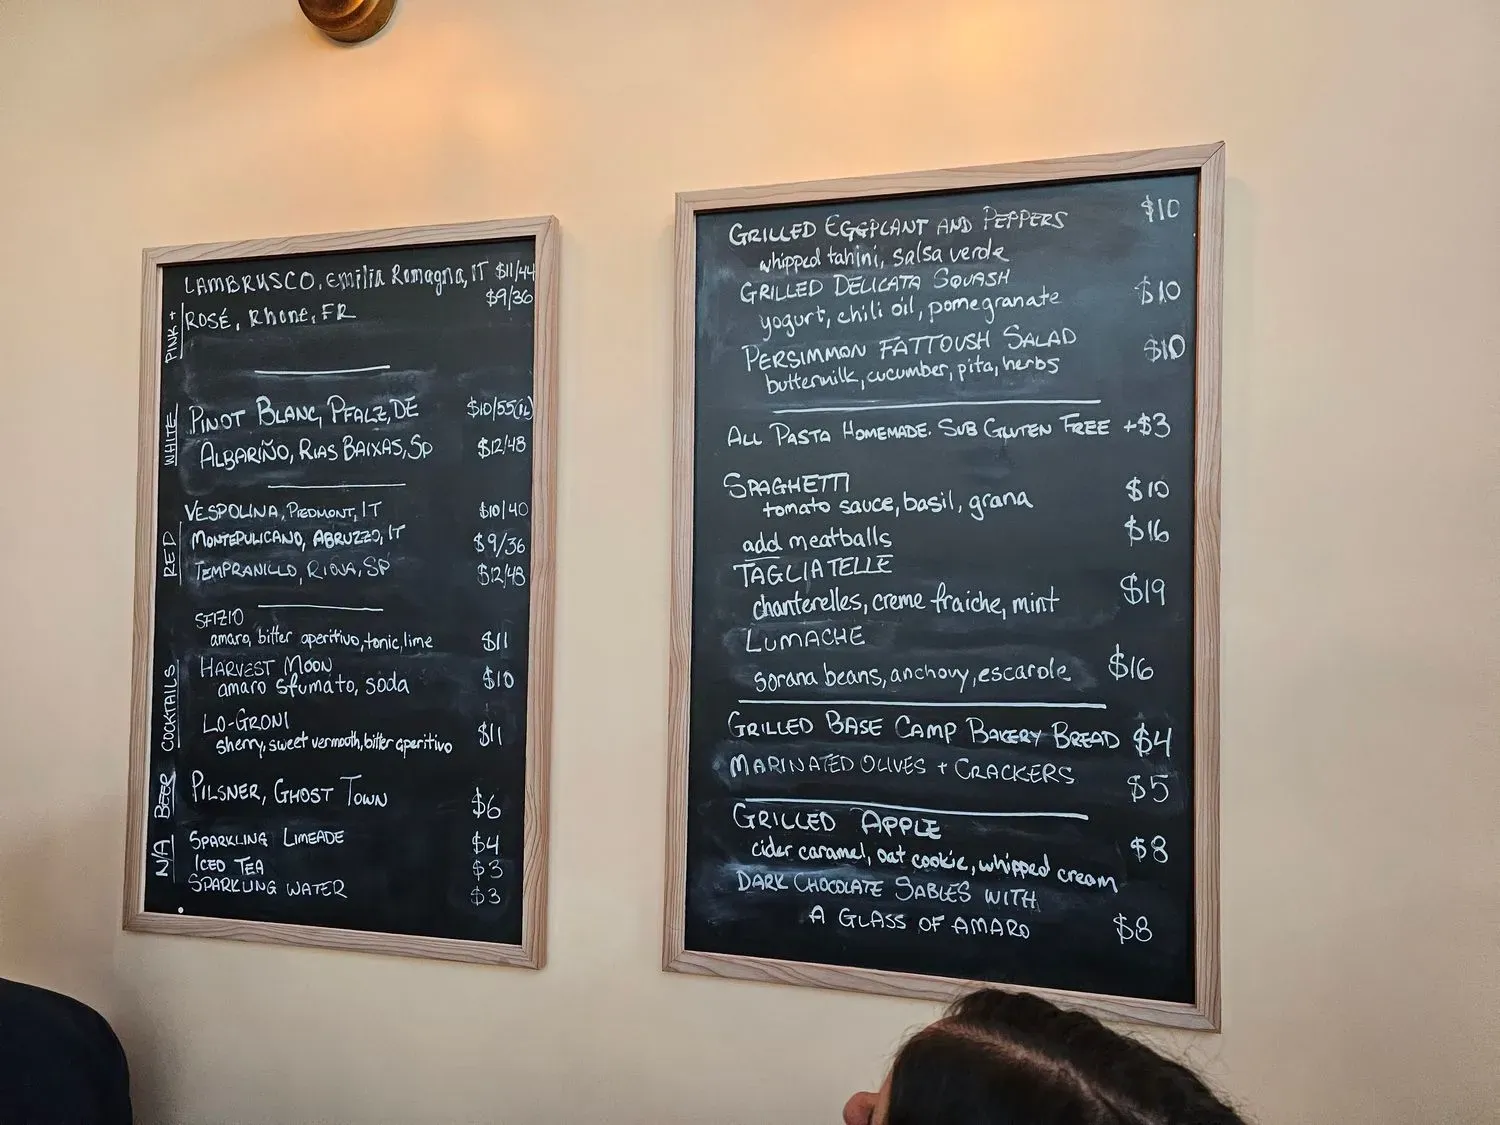 PINK +
LAMBRUSCO, Emilia Romagna, IT $11/44
ROSÉ, Rhone, FR $9/36
WHITE
PINOT BLANC, PFALZ, DE $10/55(1L)
ALBARIÑO, RIAS BAIXAS, SP $12/48
RED
VESPOLINA, PIEDMONT, IT $10/40
MONTEPULICANO, ABRUZZO, IT $9/36
TEMPRANILLO, RIOJA, SP $12/48
COCKTAILS
SFIZIO
amaro, bitter aperitivo, tonic, lime $11
HARVEST MOON
amaro sfumato, soda $10
LO-GRONI
sherry, sweet vermouth, bitter aperitivo $11
BEER
PILSNER, GHOST TOWN $6
N/A
SPARKLING LIMEADE $4
ICED TEA $3
SPARKLING WATER $3
GRILLED EGGPLANT AND PEPPERS $10
whipped tahini, salsa verde
GRILLED DELICATA SQUASH $10
yogurt, chili oil, pomegranate
PERSIMMON FATTOUSH SALAD $10
buttermilk, cucumber, pita, herbs
ALL PASTA HOMEMADE. SUB GLUTEN FREE +$3
SPAGHETTI $10
tomato sauce, basil, grana
add meatballs $16
TAGLIATELLE
chanterelles, creme fraiche, mint $19
LUMACHE
sorana beans, anchovy, escarole $16
GRILLED BASE CAMP BAKERY BREAD $4
MARINATED OLIVES + CRACKERS $5
GRILLED APPLE
cider caramel, oat cookie, whipped cream $8
DARK CHOCOLATE SABLES WITH
A GLASS OF AMARO $8